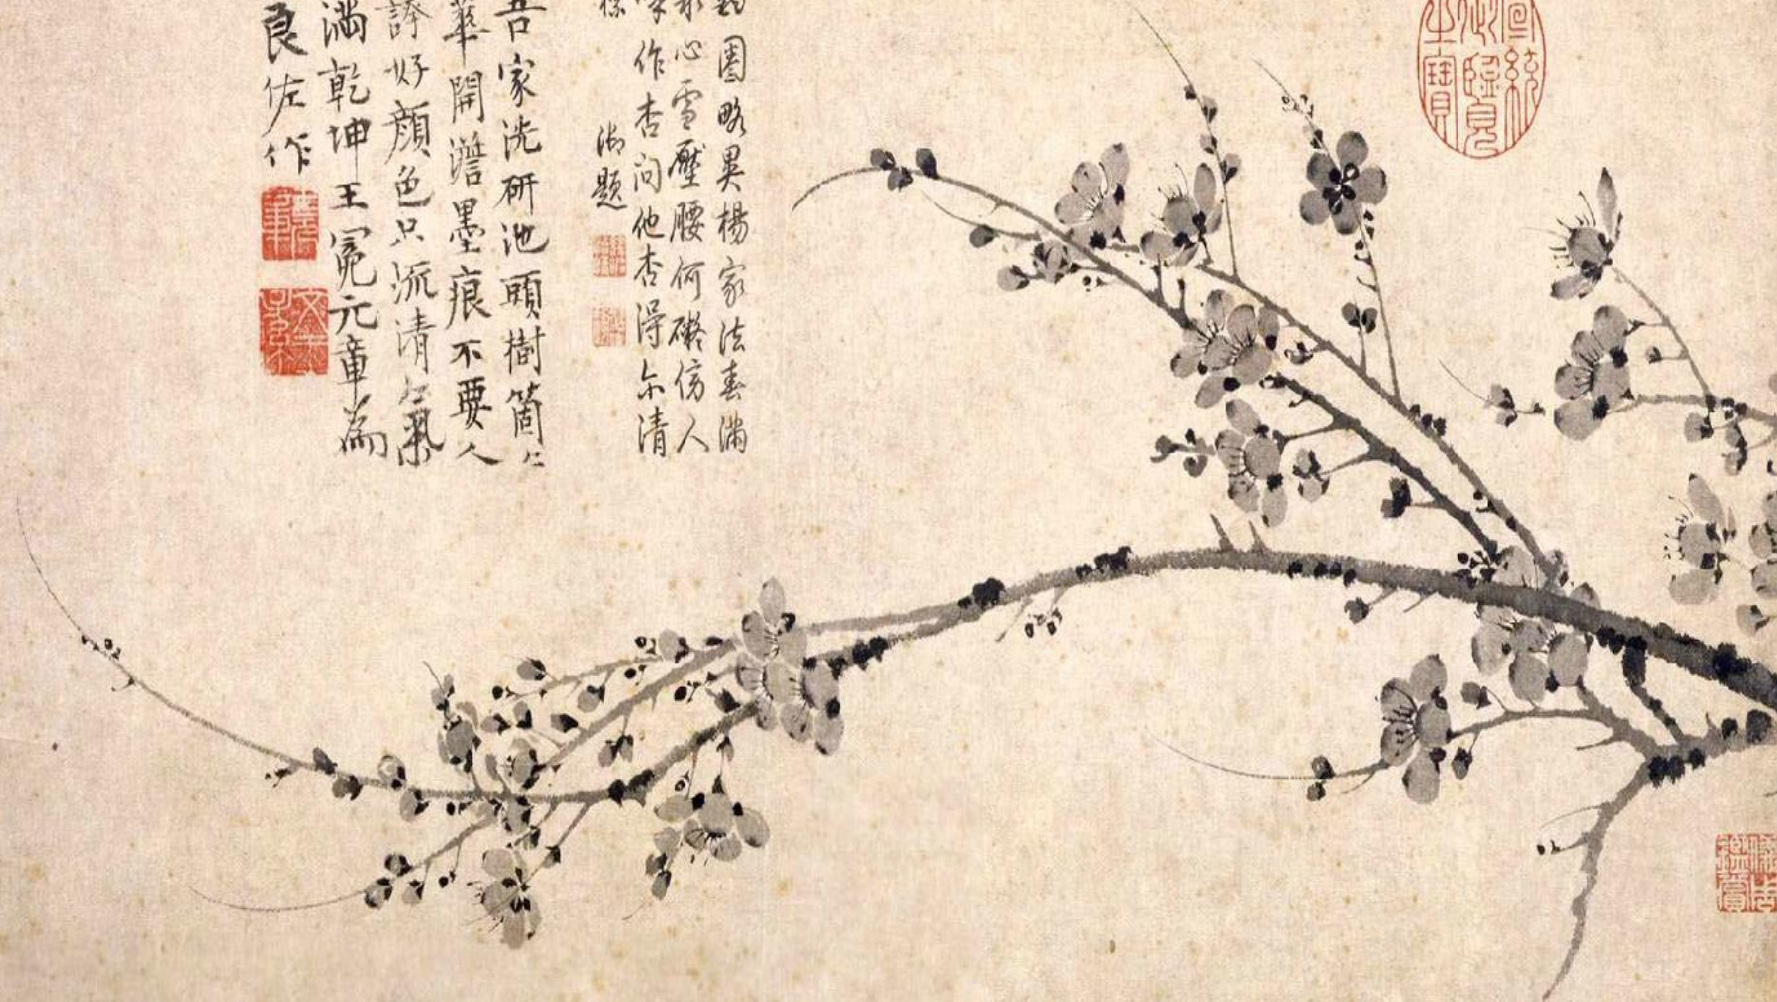 圈略異楊家法春滿
心雪壓腰何礙倩人
作杏問他杏得尓清
御題
吾家洗研池頭樹箇〻
華開澹墨痕不要人
誇好顏色只流清氣
滿乾坤王冕元章爲
良佐作